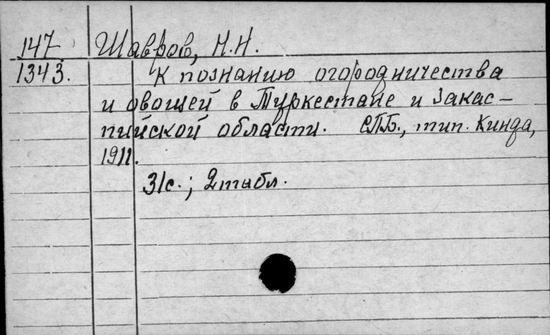 147 Шавров, Н.Н.
1343. К познанию огородничества
и овощей в Туркестане и Закас-
пийской области. СПБ., тип. Кинда,
1911.
31с.; 2табл.